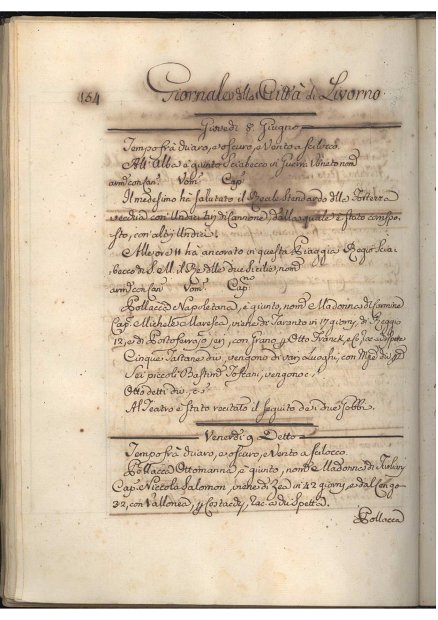 154 Giornale della Città di Livorno
Giovedì 8. Giugno
Tempo frà chiaro, e oscuro, e Vento a scilocco.
All'Alba è giunto Sciabecco in Guerra Veneto nom.
arm. con san. Uom. Cap.
Il medesimo hà salutato il Reale Stendardo della Fortezza
vecchia con Undici tiri di Cannone, dalla quale è stato corrispo-
sto, con altri Undici.
Alle ore 11 hà ancorato in questa Spiaggia Regio Scia-
becco di S. M. il Rè delle due Sicilie, nom.
arm. con san. Uom. Cap.no
Pollacca Napoletana, è giunto, nom. Madonna del Carmine
Cap. Michele Maresca, viene da Taranto in 17 giorni, da Reggio
12, e da Portoferrajo jeri, con Grano p Otto Franck, e C.
Cinque Tartane div. vengono di varj Luoghi, con
Sei piccoli Bastim. Toscani, vengono c.
Otto detti div.
Al Teatro è stato recitato il seguito de i due Gobbi.
Venerdì 9 Detto
Tempo frà chiaro, e oscuro, e Vento a scilocco.
Pollacca Ottomanna, è giunto, nom. Madonna di
Cap. Niccola Salomon, viene di Zea in 42 giorni, e dal Cerigo
32, con Vallonea, p Costachi,
Pollacca